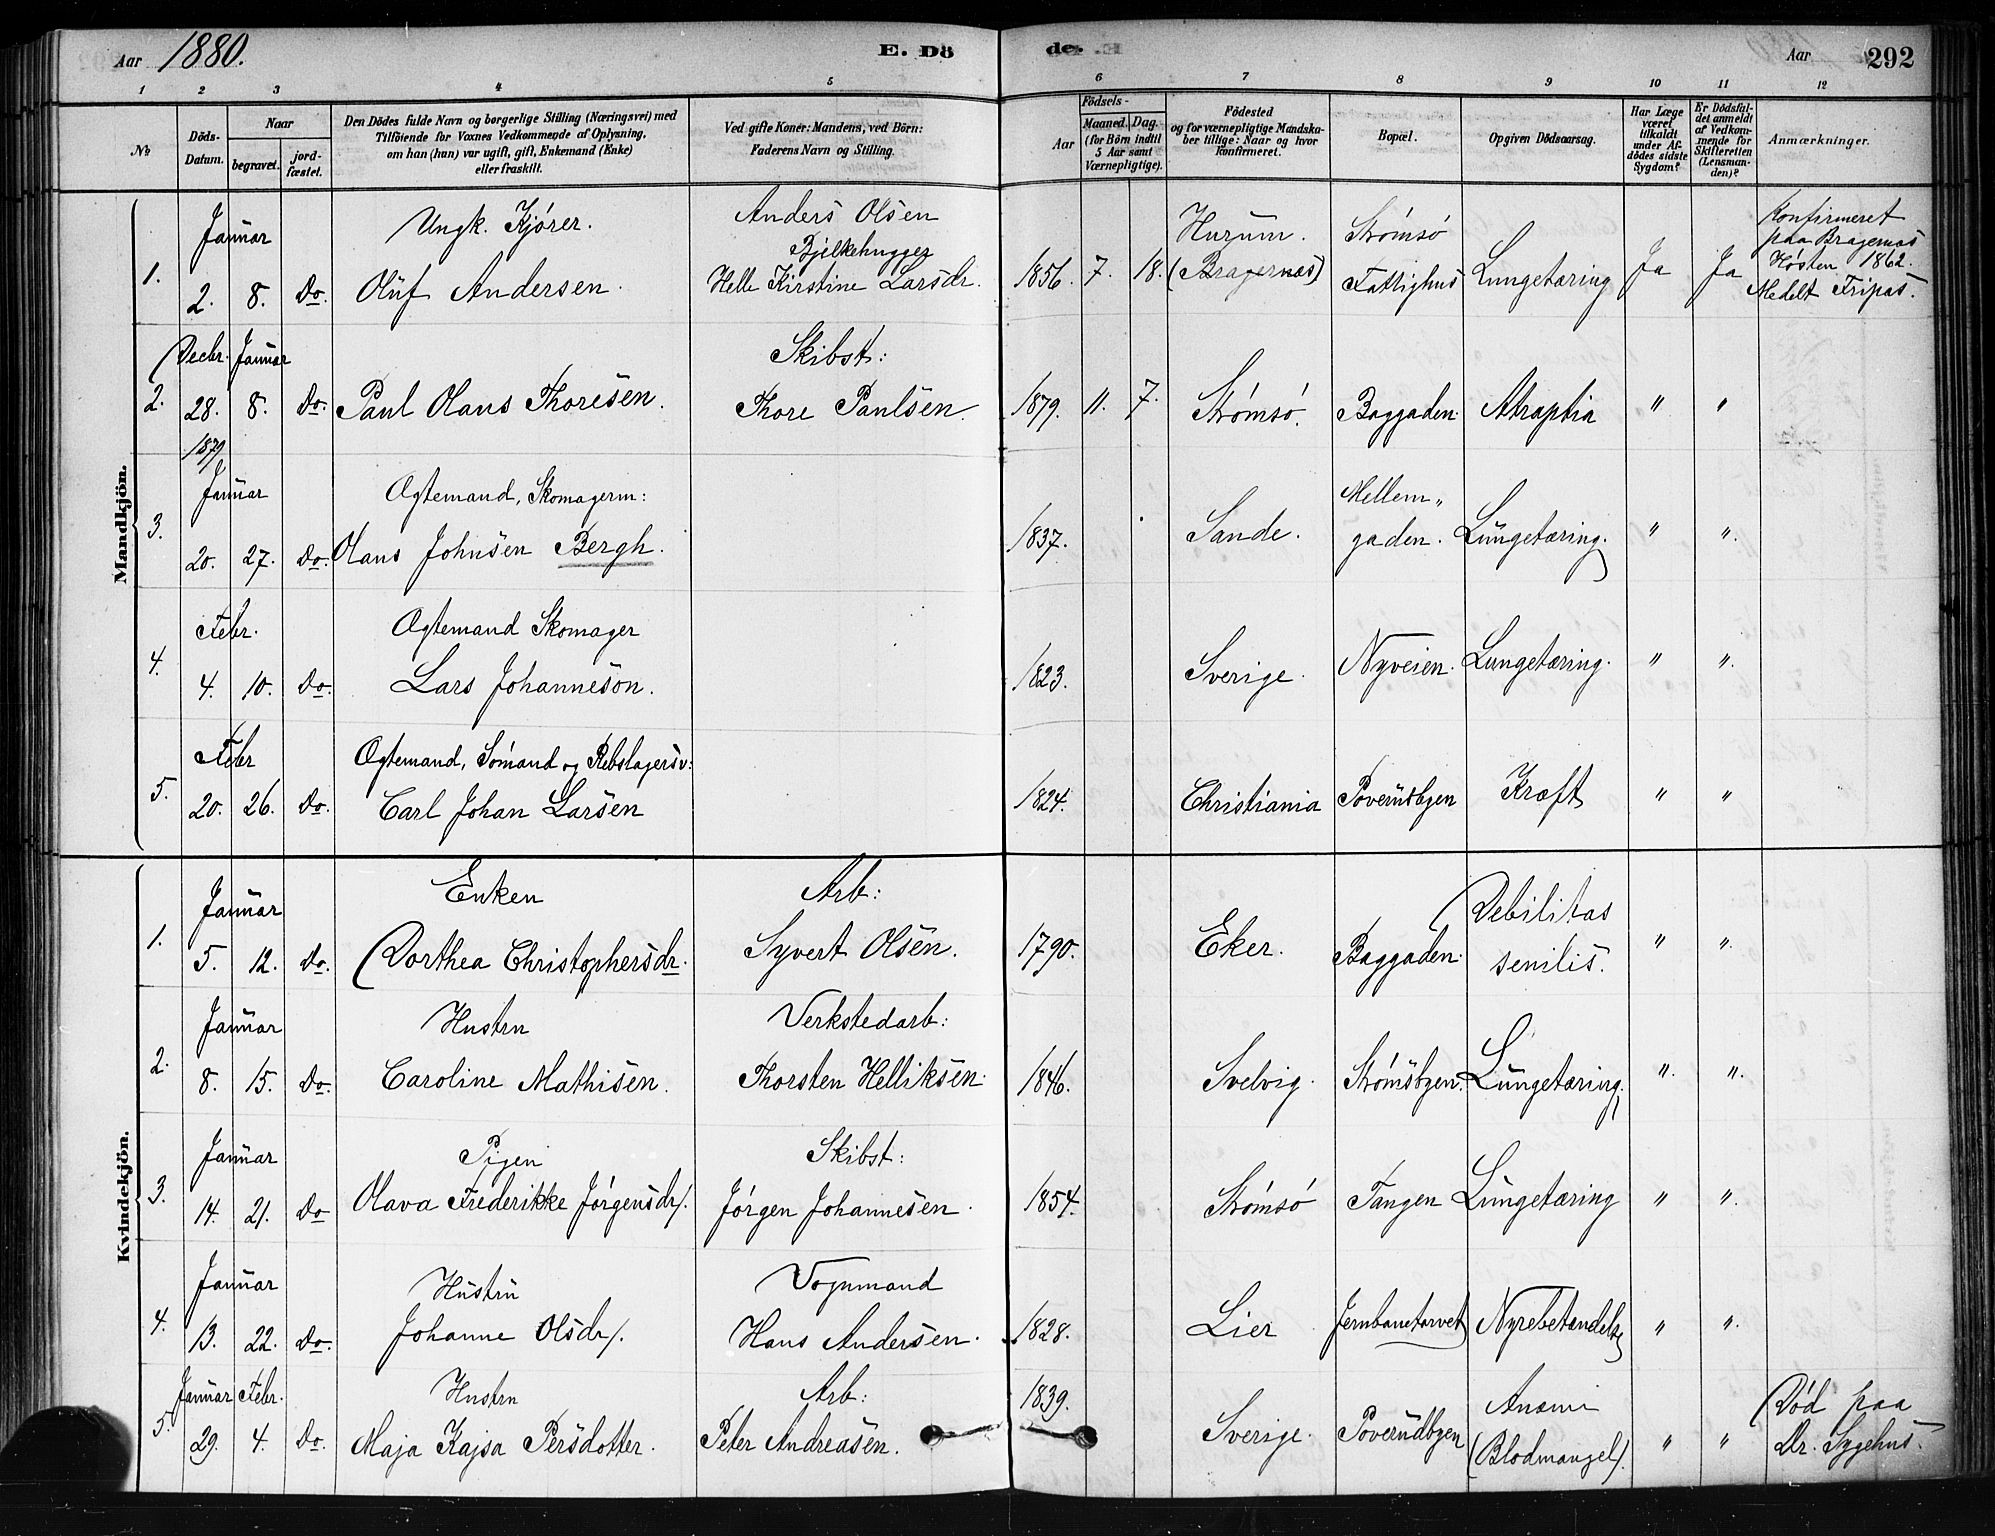 Aar 1880.
E. Dö
de.
Aar
292
1 2 3 4 5 6 7 8 9 10 11 12
№
Döds-
Datum.
Naar
begravet.
jord-
fæstet.
Den Dödes fulde Navn og borgerlige Stilling (Næringsvei) med
Tilföiende for Voxnes Vedkommende af Oplysning,
om han (hun) var ugift, gift, Enkemand (Enke)
eller fraskilt.
Ved gifte Koner: Mandens, ved Börn:
Faderens Navn og Stilling.
Födsels-
Aar
Maaned. Dag.
(for Börn indtil
5 Aar samt
Værnepligtige).
Födested
og for værnepligtige Mandska-
ber tillige: Naar og hvor
konfirmeret.
Bopæl.
Opgiven Dödsaarsag.
Har Læge
været
tilkaldt
under Af-
dödes sidste
Sygdom?
Er Dödsfal-
det anmeldt
af Vedkom-
mende for
Skifteretten
(Lensman-
den)?
Anmærkninger.
Mandkjön.
Januar
Ungk. Kjører.
Anders Olsen
Bjelkehugger
Hurum.
Strømsø
Konfirmeret
paa Bragernæs
Høsten 1862.
Medelt Fripas.
1. 2. 8. Do. Oluf Andersen. Helle Kirstine Larsdr. 1856. 7. 18. (Bragernæs) Fattighus Lungetæring Ja Ja
Decbr. Januar
Skibst:
2. 28. 8. Do. Paul Olaus Thoresen. Thore Paulsen. 1879. 11. 7. Strømsø. Baggaden. Atraptia " "
1879
Januar
Ægtemand, Skomagerm:
Mellem„
3. 20. 27. Do. Olaus Johnsen Bergh. 1837. Sande. gaden. Lungetæring. " ".
Febr.
Ægtemand Skomager
4. 4. 10. Do. Lars Johanneson. 1823. Sverige. Nyveien. Lungetæring. " ".
Febr
Ægtemand, Sømand og Rebslagersv:
5. 20. 26. Do. Carl Johan Larsen 1824. Christiania Poverudbyen Kræft " "
Kvindekjön.
Januar
Enken
Arb:
Debilitas
1. 5. 12. Do. Dorthea Christophersdr. Syvert Olsen. 1790. Eker. Baggaden. senilis. " ".
Januar
Hustru
Verkstedarb:
2. 8. 15. Do. Caroline Mathisen. Thorsten Helliksen. 1846. Svelvig. Strømsbyen. Lungetæring. ". ".
Januar
Pigen
Skibst:
3. 14. 21. Do Olava Frederikke Jørgensdr/. Jørgen Johannesen. 1854. Strømsø Tangen Lungetæring " ".
Januar
Hustru
Vognmand
4. 13. 22. Do. Johanne Olsdr/. Hans Andersen. 1828. Lier Jernbanetorvet Nyrebetændelse " ".
Januar Febr.
Hustru
Arb:
1839.
Anæmi
Død paa
5. 29. 4. Do. Maja Kajsa Persdotter. Peter Andreasen. Sverige. Poverudbyen (Blodmangel). " " Dr. Sygehus.